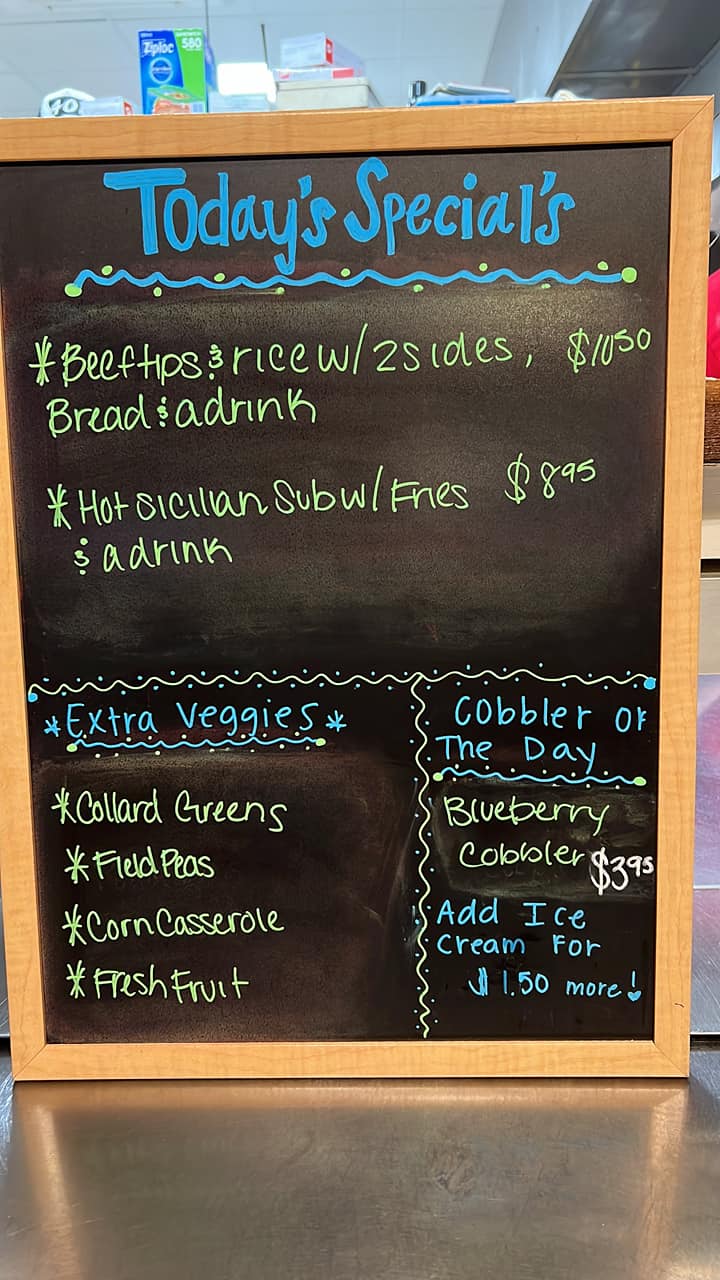 Ziploc 580
GO
Today's Special's
*Beef tips & rice w/ 2 sides, $10.50
Bread & a drink
*Hot Sicilian Sub w/ Fries $8.95
& a drink
*Extra Veggies*
*Collard Greens
*Field Peas
*Corn Casserole
*Fresh Fruit
Cobbler of
The Day
Blueberry
Cobbler $3.95
Add Ice
Cream For
$1.50 more!